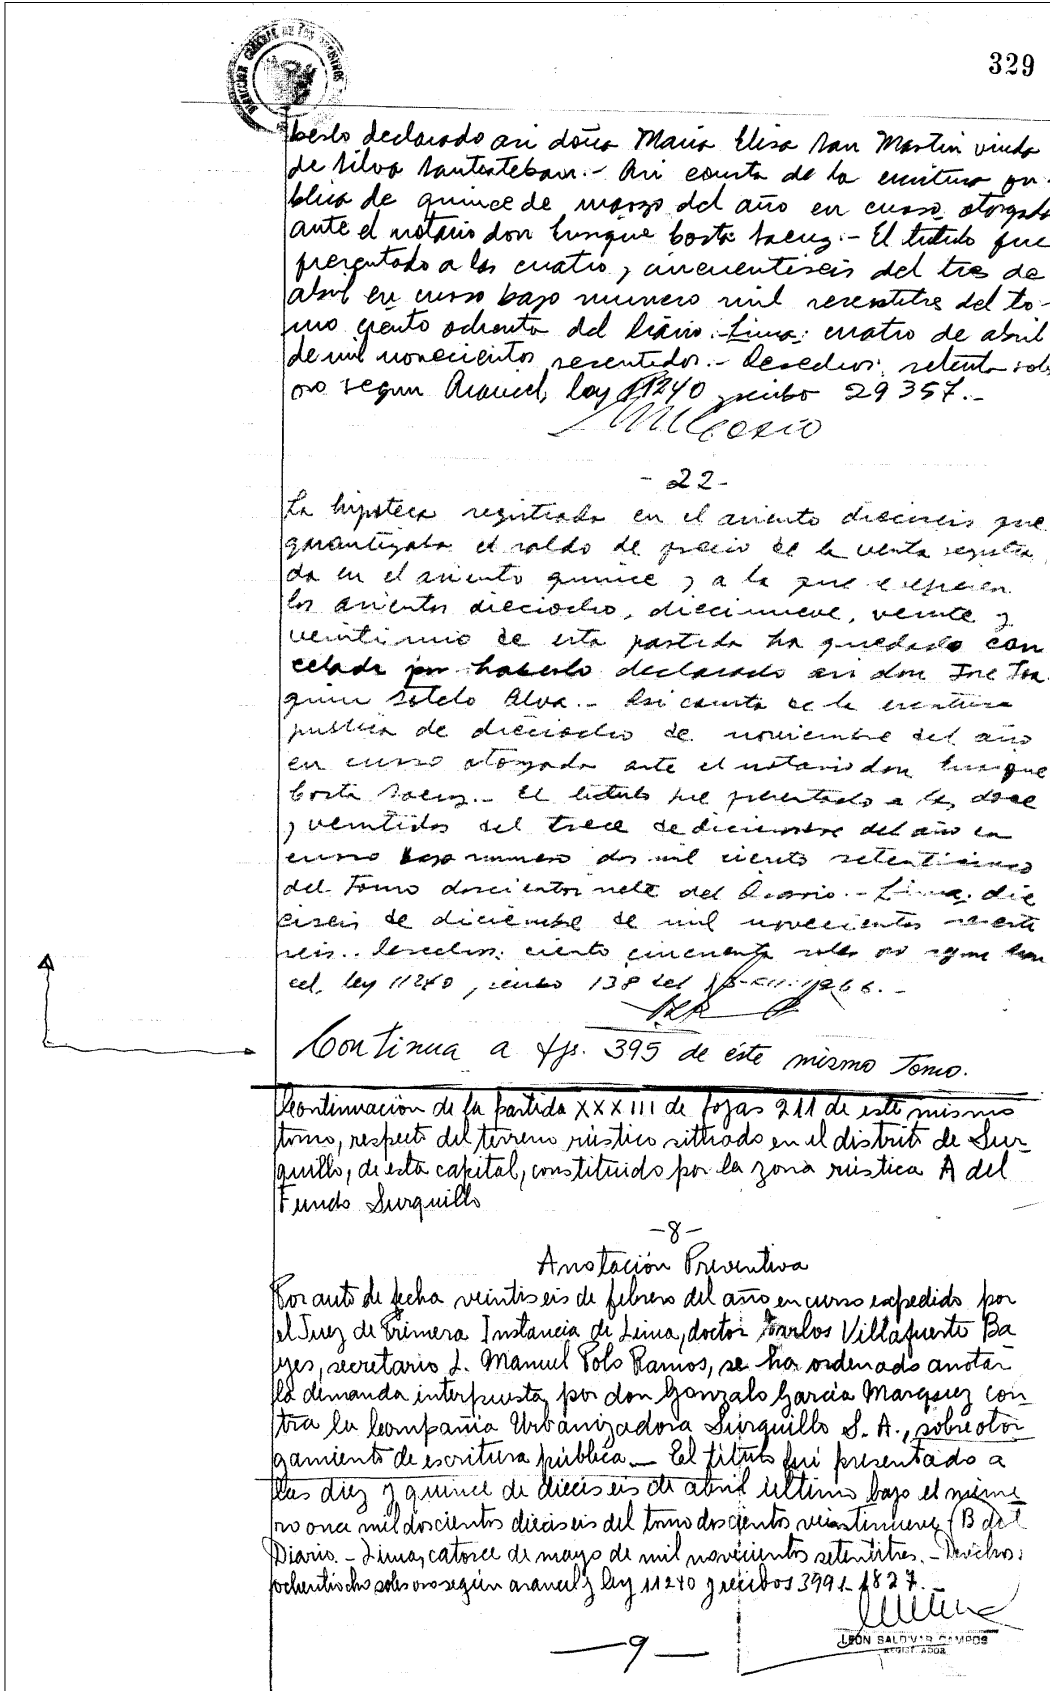 DIRECCION GENERAL DE LOS REGISTROS
329
berlo declarado asi doña Maria Elisa San Martin viuda
de Silva Santisteban.- Asi consta de la escritura pu-
blica de quince de marzo del año en curso, otorgada
ante el notario don Enrique Costa Saenz.- El titulo fue
presentado a las cuatro y cincuentiseis del tres de
abril en curso bajo numero mil sesentitres del to-
mo ciento ochenta del Diario. Lima: cuatro de abril
de mil novecientos sesentidos.- Derechos: setenta soles
oro segun Arancel, ley 11240 recibo 29357.-
- 22 -
La hipoteca registrada en el asiento dieciseis que
garantizaba el saldo de precio de la venta registra
da en el asiento quince y a la que se refieren
los asientos dieciocho, diecinueve, veinte y
veintiuno de esta partida ha quedado can
celada por haberlo declarado asi don Jose Joa
quin Sotelo Alva.- Asi consta de la escritura
publica de dieciocho de noviembre del año
en curso otorgada ante el notario don Enrique
Costa Saenz.- El titulo fue presentado a las doce
y veintidos del trece de diciembre del año en
curso bajo numero dos mil ciento setenticinco
del Tomo doscientos siete del Diario.- Lima, die
ciseis de diciembre de mil novecientos sesenti
seis.- Derechos: ciento cincuenta soles oro segun aran
cel, ley 11240, recibo 138 del -XII-1966.-
Continua a fjs. 395 de éste mismo Tomo.
Continuación de la partida XXXIII de fojas 211 de este mismo
tomo, respecto del terreno rústico situado en el distrito de Sur-
quillo, de esta capital, constituido por la zona rústica A del
Fundo Surquillo
-8-
Anotación Preventiva
Por auto de fecha veintiseis de febrero del año en curso expedido por
el Juez de Primera Instancia de Lima, doctor Carlos Villafuerte Ba
yes, secretario J. Manuel Polo Ramos, se ha ordenado anotar
la demanda interpuesta por don Gonzalo Garcia Marquez con-
tra la Compañia Urbanizadora Surquillo S. A., sobre otor
gamiento de escritura pública.- El título fué presentado a
las diez y quince de dieciseis de abril último bajo el núme
ro once mil doscientos dieciseis del tomo doscientos veintinueve (B del
Diario.- Lima, catorce de mayo de mil novecientos setentitres.- Derechos:
ochentiocho soles oro según arancel y ley 11240 y recibos 3991-1827.-
LEÓN SALDIVAR CAMPOS
REGISTRADOR
—9—